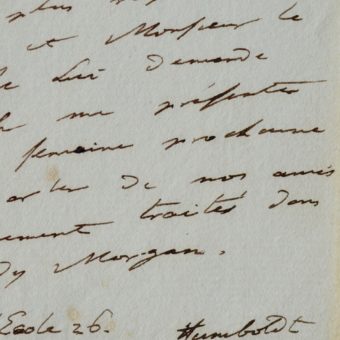 plus
et Monsieur le
lui demande
me présenter
semaine prochaine
de nos amis
ement traités dans
dy Morgan.
Ecole 26. Humboldt